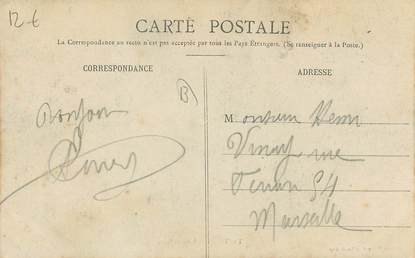 12 €
CARTE POSTALE
La Correspondance au recto n'est pas acceptée par tous les Pays Étrangers. (Se renseigner à la Poste.)
CORRESPONDANCE
ADRESSE
B)
Bonjour
Monsieur Henri
Vinay rue
54
Marseille